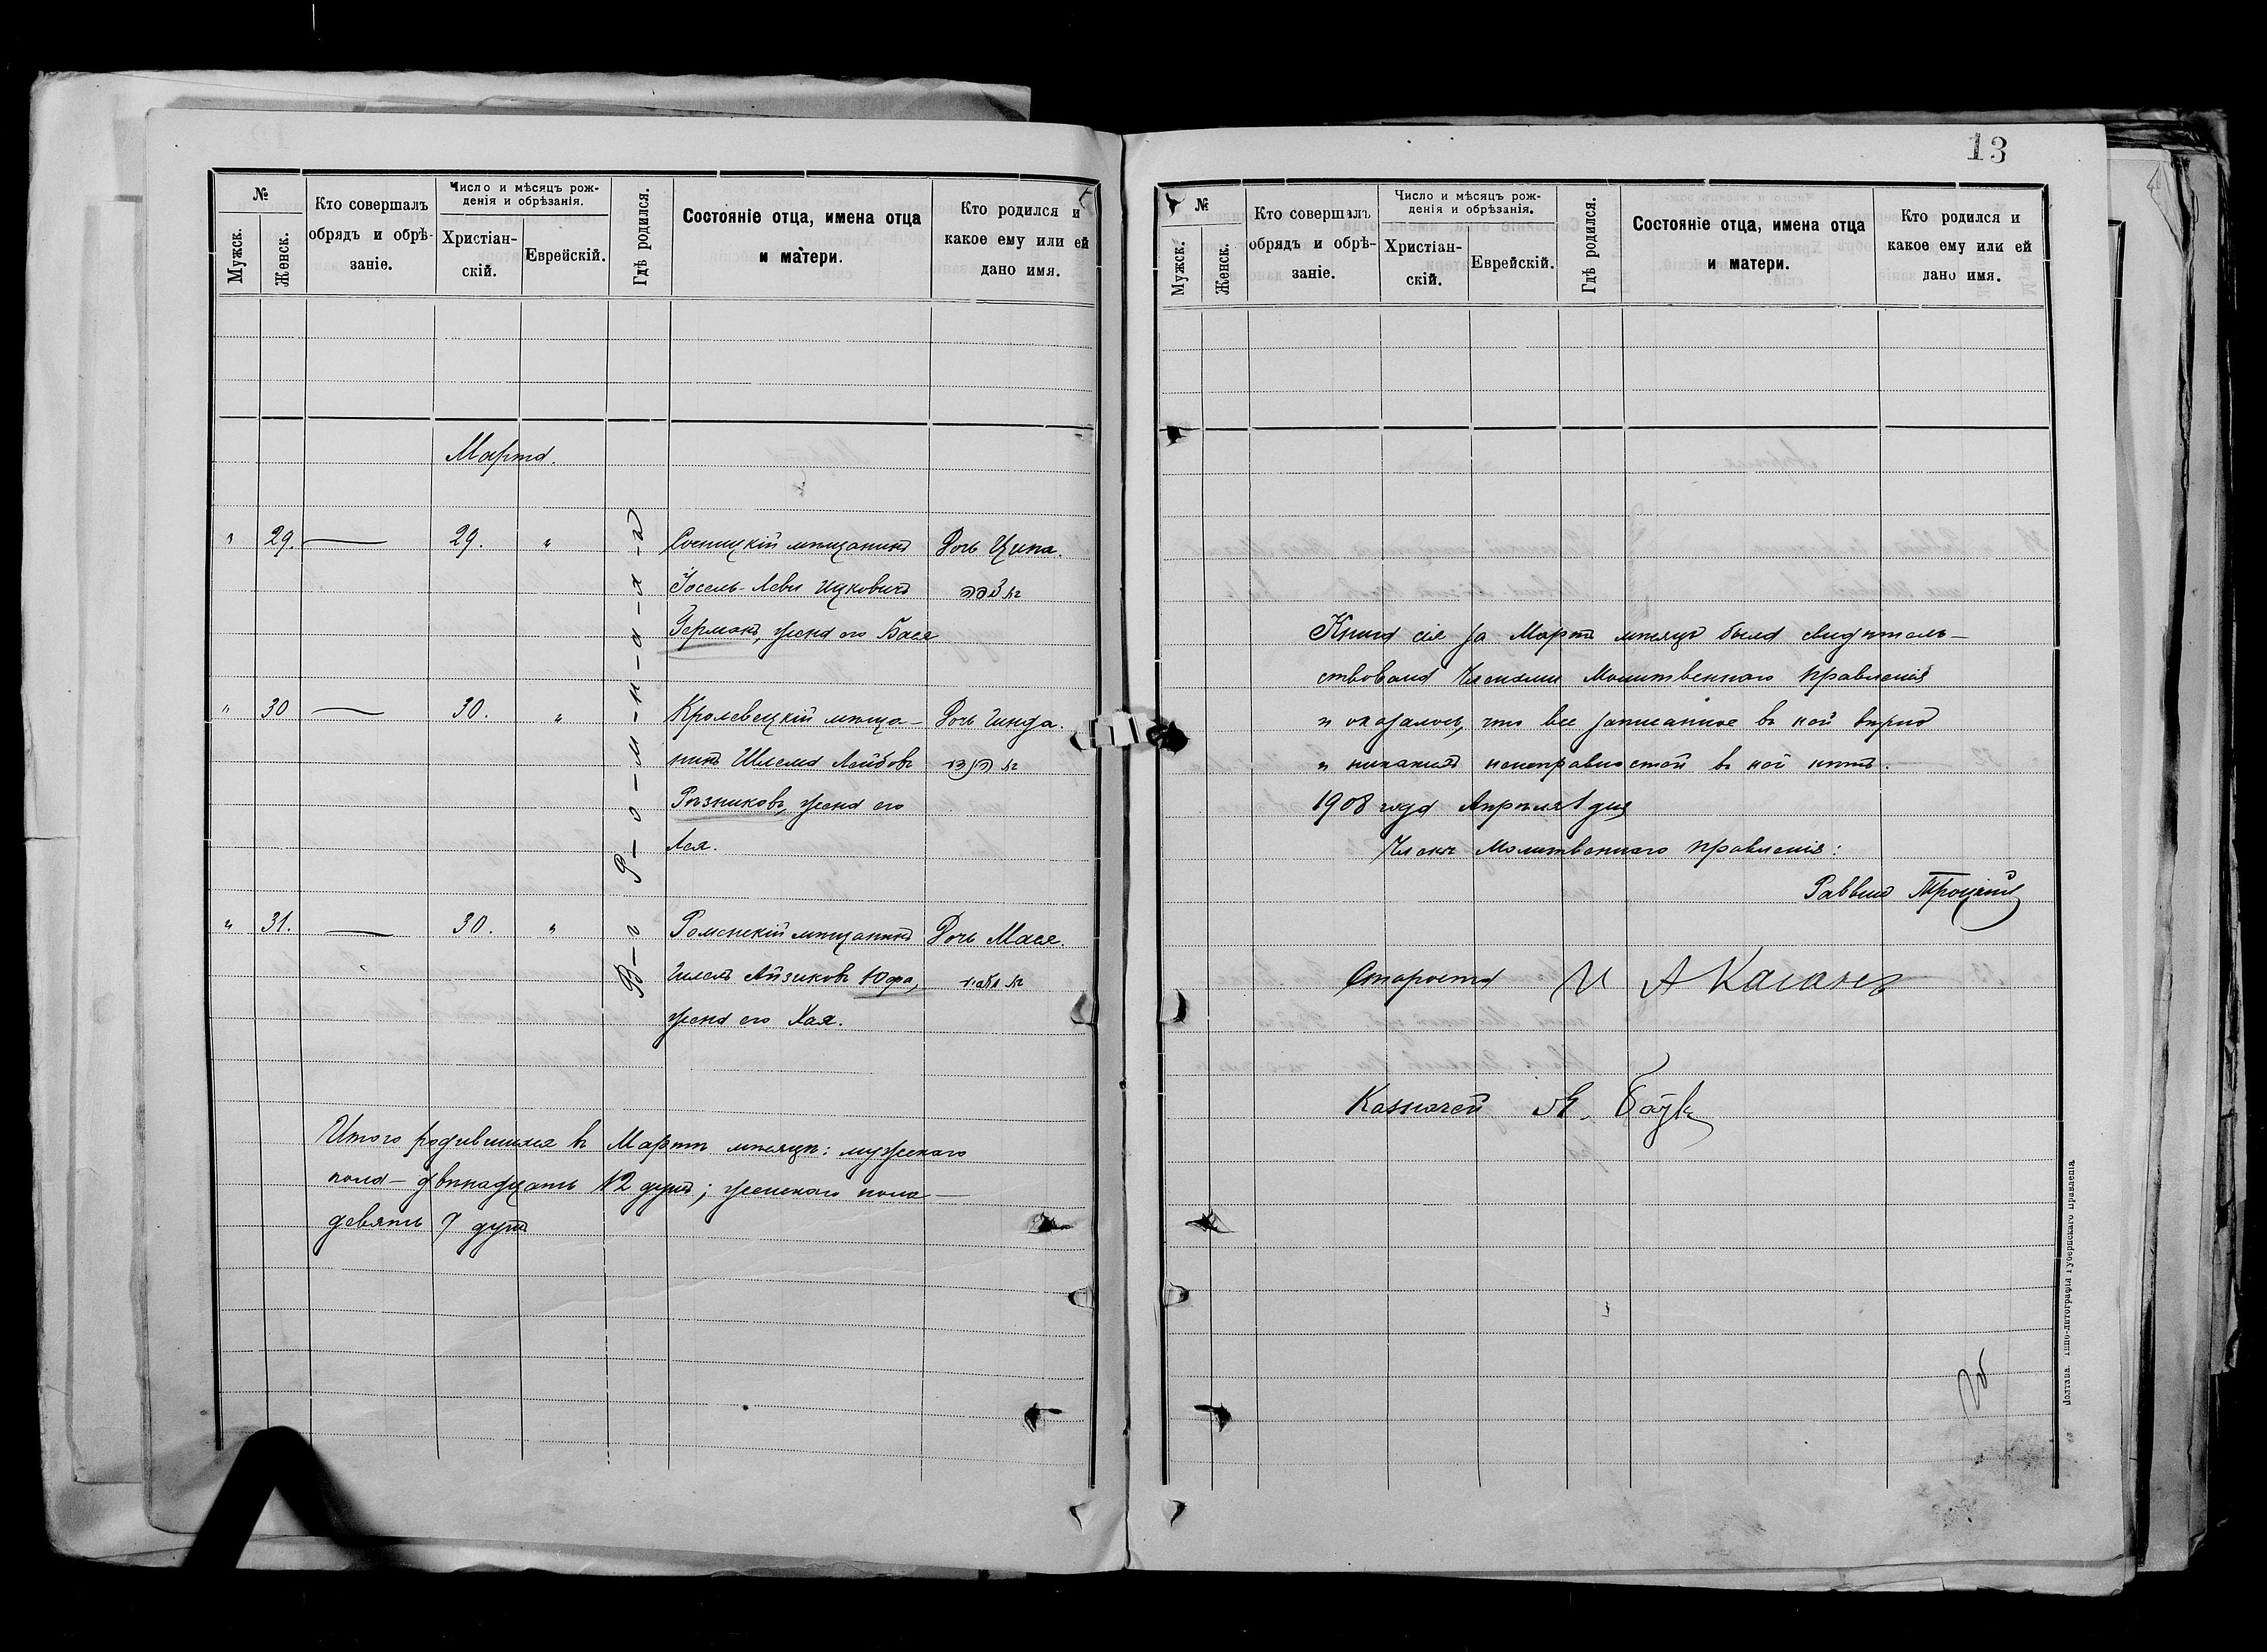 №
Мужск.
Женск.
Кто совершалъ
обрядъ и обрѣ-
заніе.
Число и мѣсяцъ рож-
денія и обрѣзанія.
Христіан-
скій.
Еврейскій.
Гдѣ родился.
Состояніе отца, имена отца
и матери.
Кто родился и
какое ему или ей
дано имя.
Марта.
" 29. — 29. " Сосницкій мѣщанинъ Дочь Ципа.
Іосель-Леви Ицковичъ
Германъ, жена его Бася
" 30 — 30. " Кролевецкій мѣща- Дочь Гинда.
нинъ Шлема Лейбовъ
Рѣзниковъ, жена его
Лея.
" 31. — 30. " Роменскій мѣщанинъ Дочь Мася.
Гилель Айзиковъ Юфа,
жена его Хая.
В-г Р-о-м-н-а-х-ъ
Итого родившихся въ Мартѣ мѣсяцѣ: мужскаго
пола - двѣнадцать 12 душъ; женскаго пола -
девять 9 душъ
13
№
Мужск.
Женск.
Кто совершалъ
обрядъ и обрѣ-
заніе.
Число и мѣсяцъ рож-
денія и обрѣзанія.
Христіан-
скій.
Еврейскій.
Гдѣ родился.
Состояніе отца, имена отца
и матери.
Кто родился и
какое ему или ей
дано имя.
Книга сія за Мартъ мѣсяцъ была свидѣтель-
ствована Членами Молитвеннаго Правленія
и оказалось, что все записанное въ ней вѣрно
и никакихъ неисправностей въ ней нѣтъ.
1908 года Апрѣля 1 дня
Члены Молитвеннаго Правленія:
Раввинъ Троцкій
Староста И А Каганъ
Казначей М.
Полтава. Типо-литографія Губернскаго Правленія